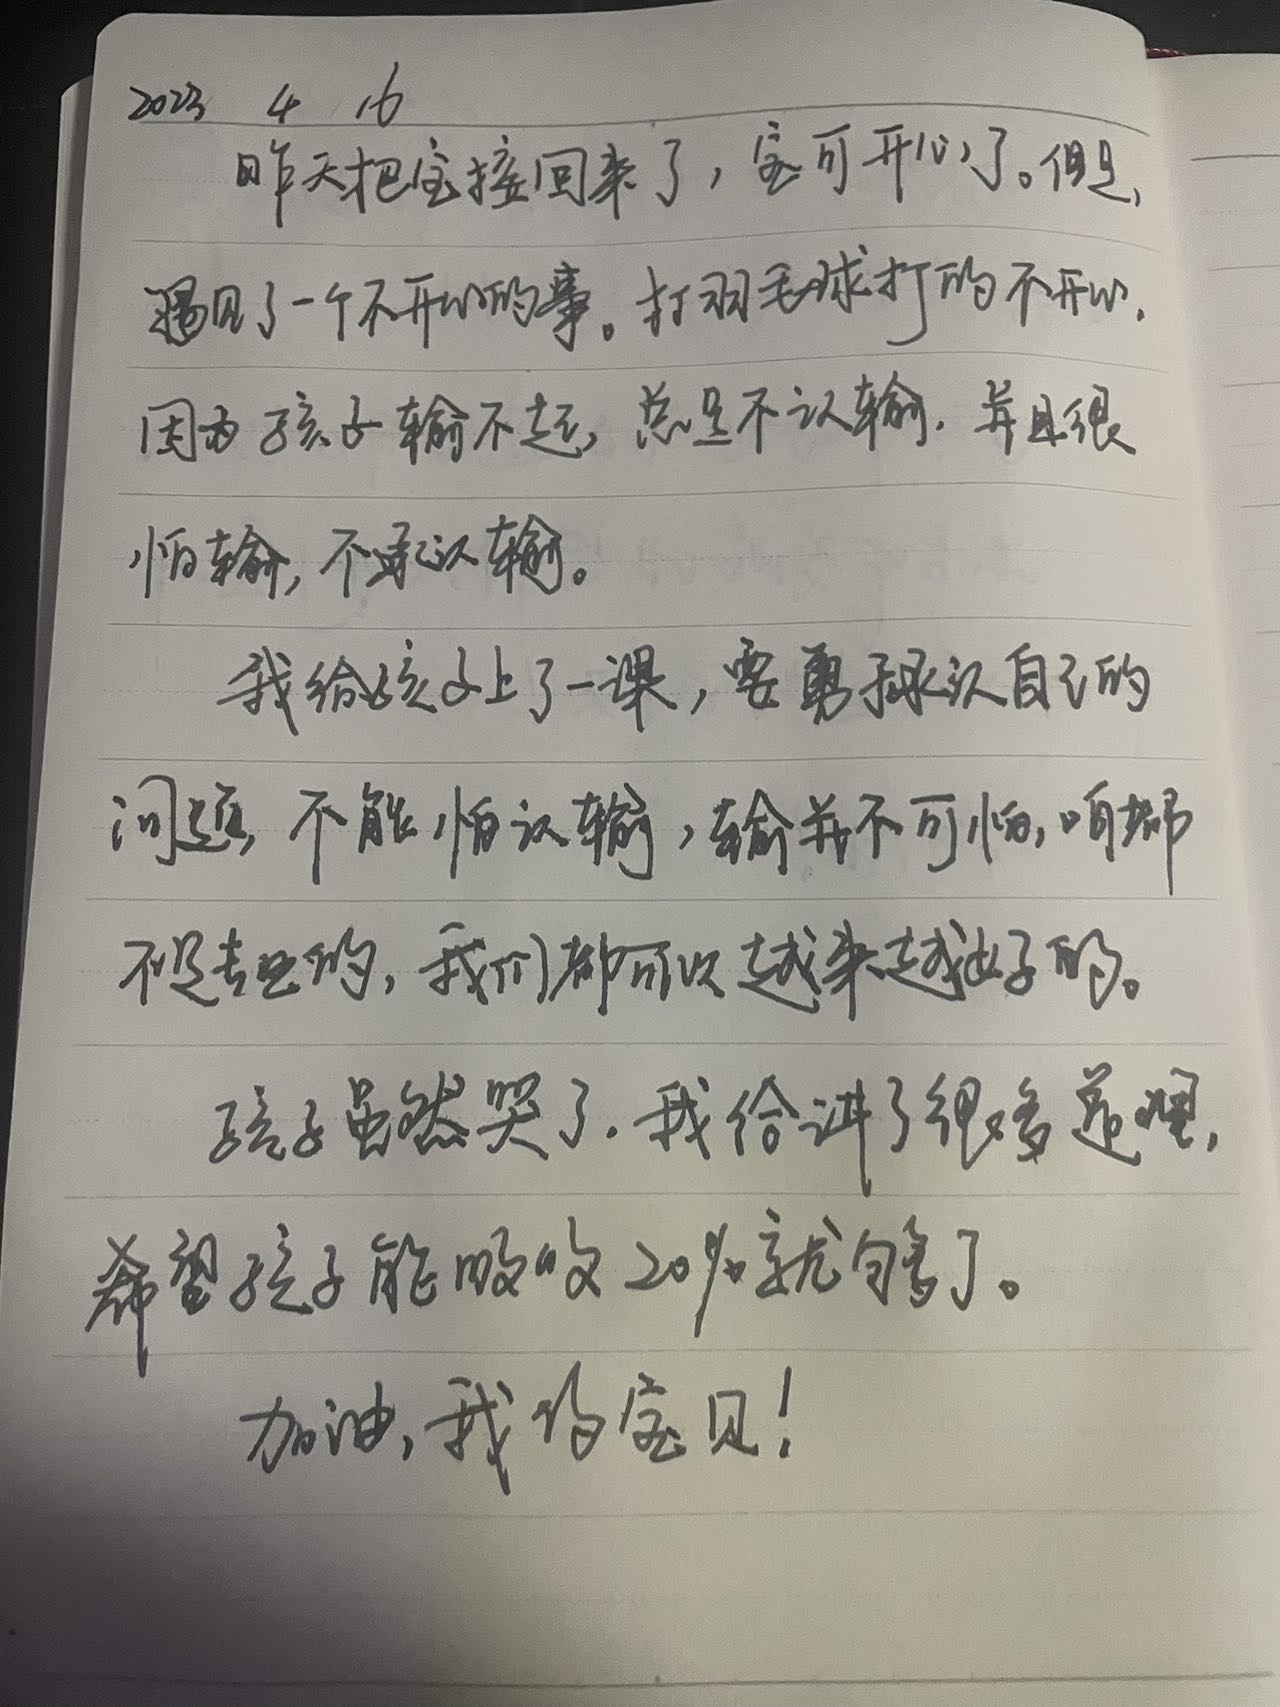 2023 4 16
昨天把宝接回来了，宝可开心了。但是，
遇见了一个不开心的事。打羽毛球打的不开心，
因为孩子输不起，总是不认输，并且很
怕输，不承认输。
我给孩子上了一课，要勇于承认自己的
问题，不能怕认输，输并不可怕，咱都
不是专业的，我们都可以越来越好的。
孩子虽然哭了，我给讲了很多道理，
希望孩子能吸收20%就够了。
加油，我的宝贝！